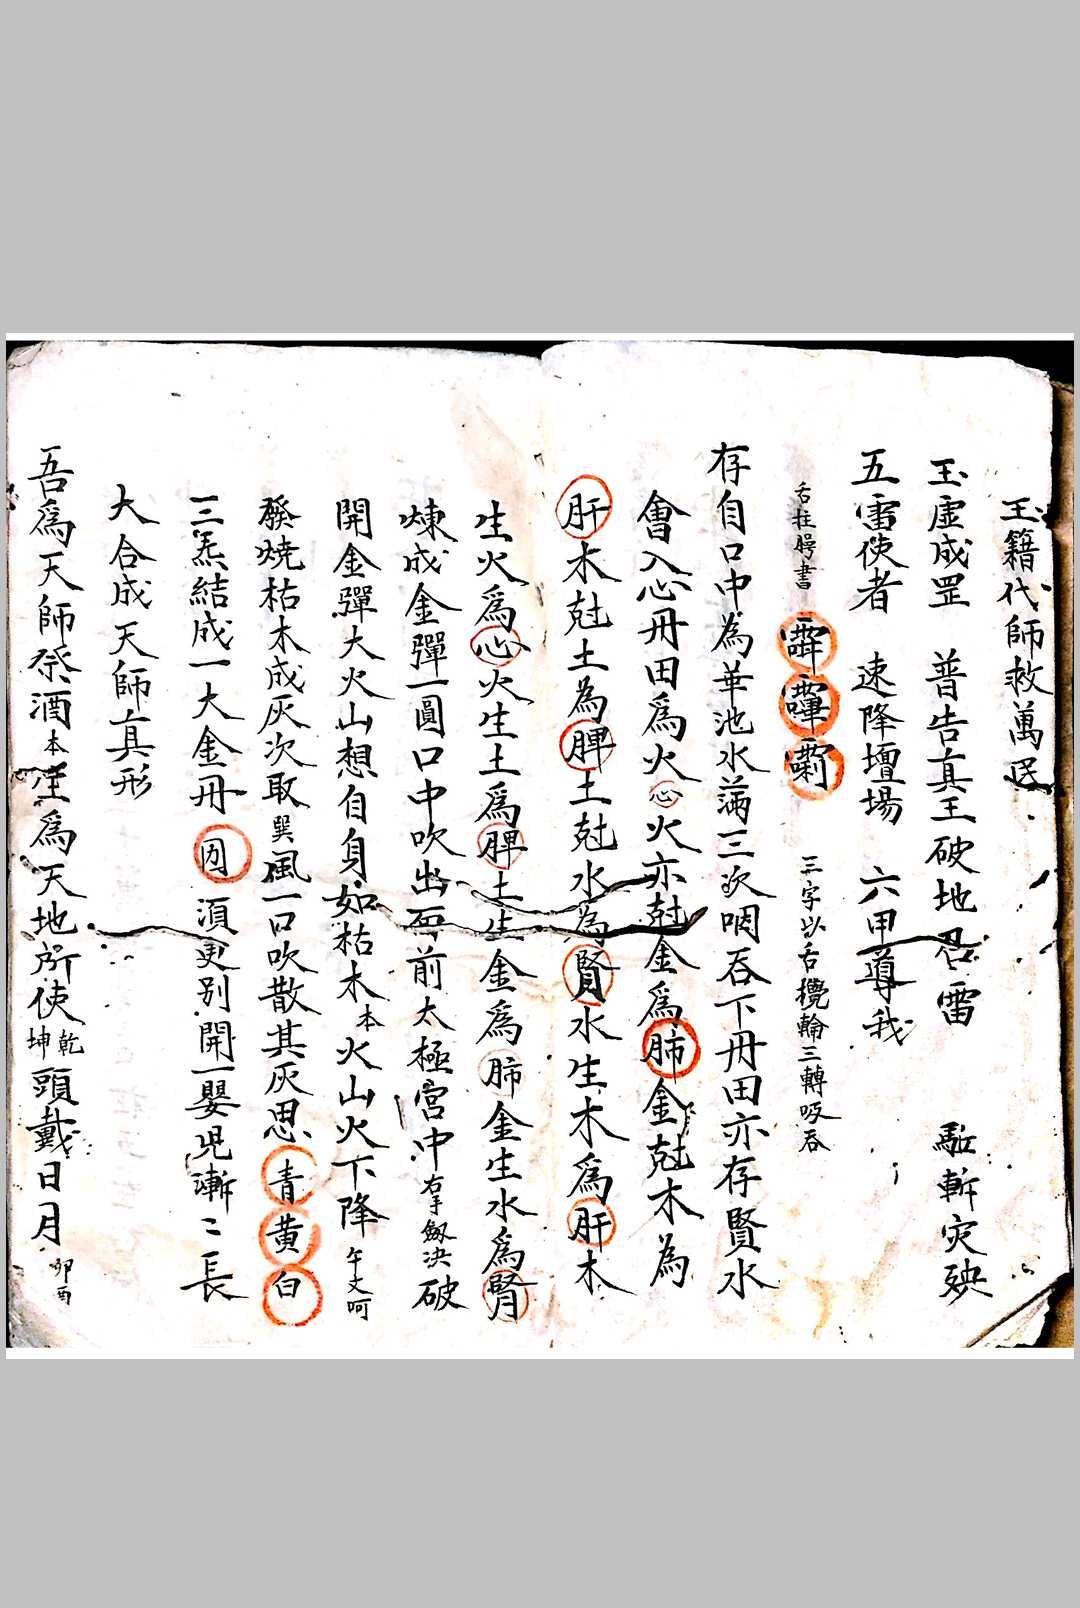 玉籍代師救萬民
玉虛成罡 普告真王破地召雷 駈斬灾殃
五雷使者 速降壇場 六甲導我
舌柱腭書 三字以舌攪輪三轉吸吞
存自口中為華池水滿三次咽吞下丹田亦存賢水
會入心丹田為火心火亦尅金為肺金尅木為
肝木尅土為脾土尅水為賢水生木為肝木
生火為心火生土為脾土生金為肺金生水為腎
煉成金彈一圓口中吹出面前太極宮中右手劔决破
開金彈大火山想自身如枯木本火山火下降午文呵
發燒枯木成灰次取巽風一口吹散其灰思青黃白
三炁結成一大金丹 須更別開一嬰児漸〻長
大合成天師真形
吾為天師祭酒本生為天地所使乾坤頭戴日月卯酉